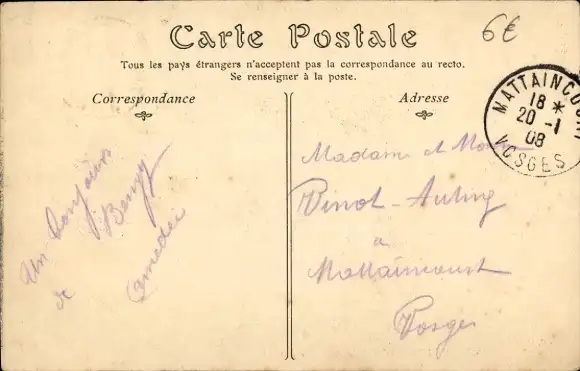 6€
Carte Postale
Tous les pays étrangers n'acceptent pas la correspondance au recto.
Se renseigner à la poste.
Correspondance
Adresse
MATTAINCOURT
18 *
20 -1
08
VOSGES
Un bonjour
de
Amedée
Madame et
Vinot-
a
Mattaincourt
Vosges